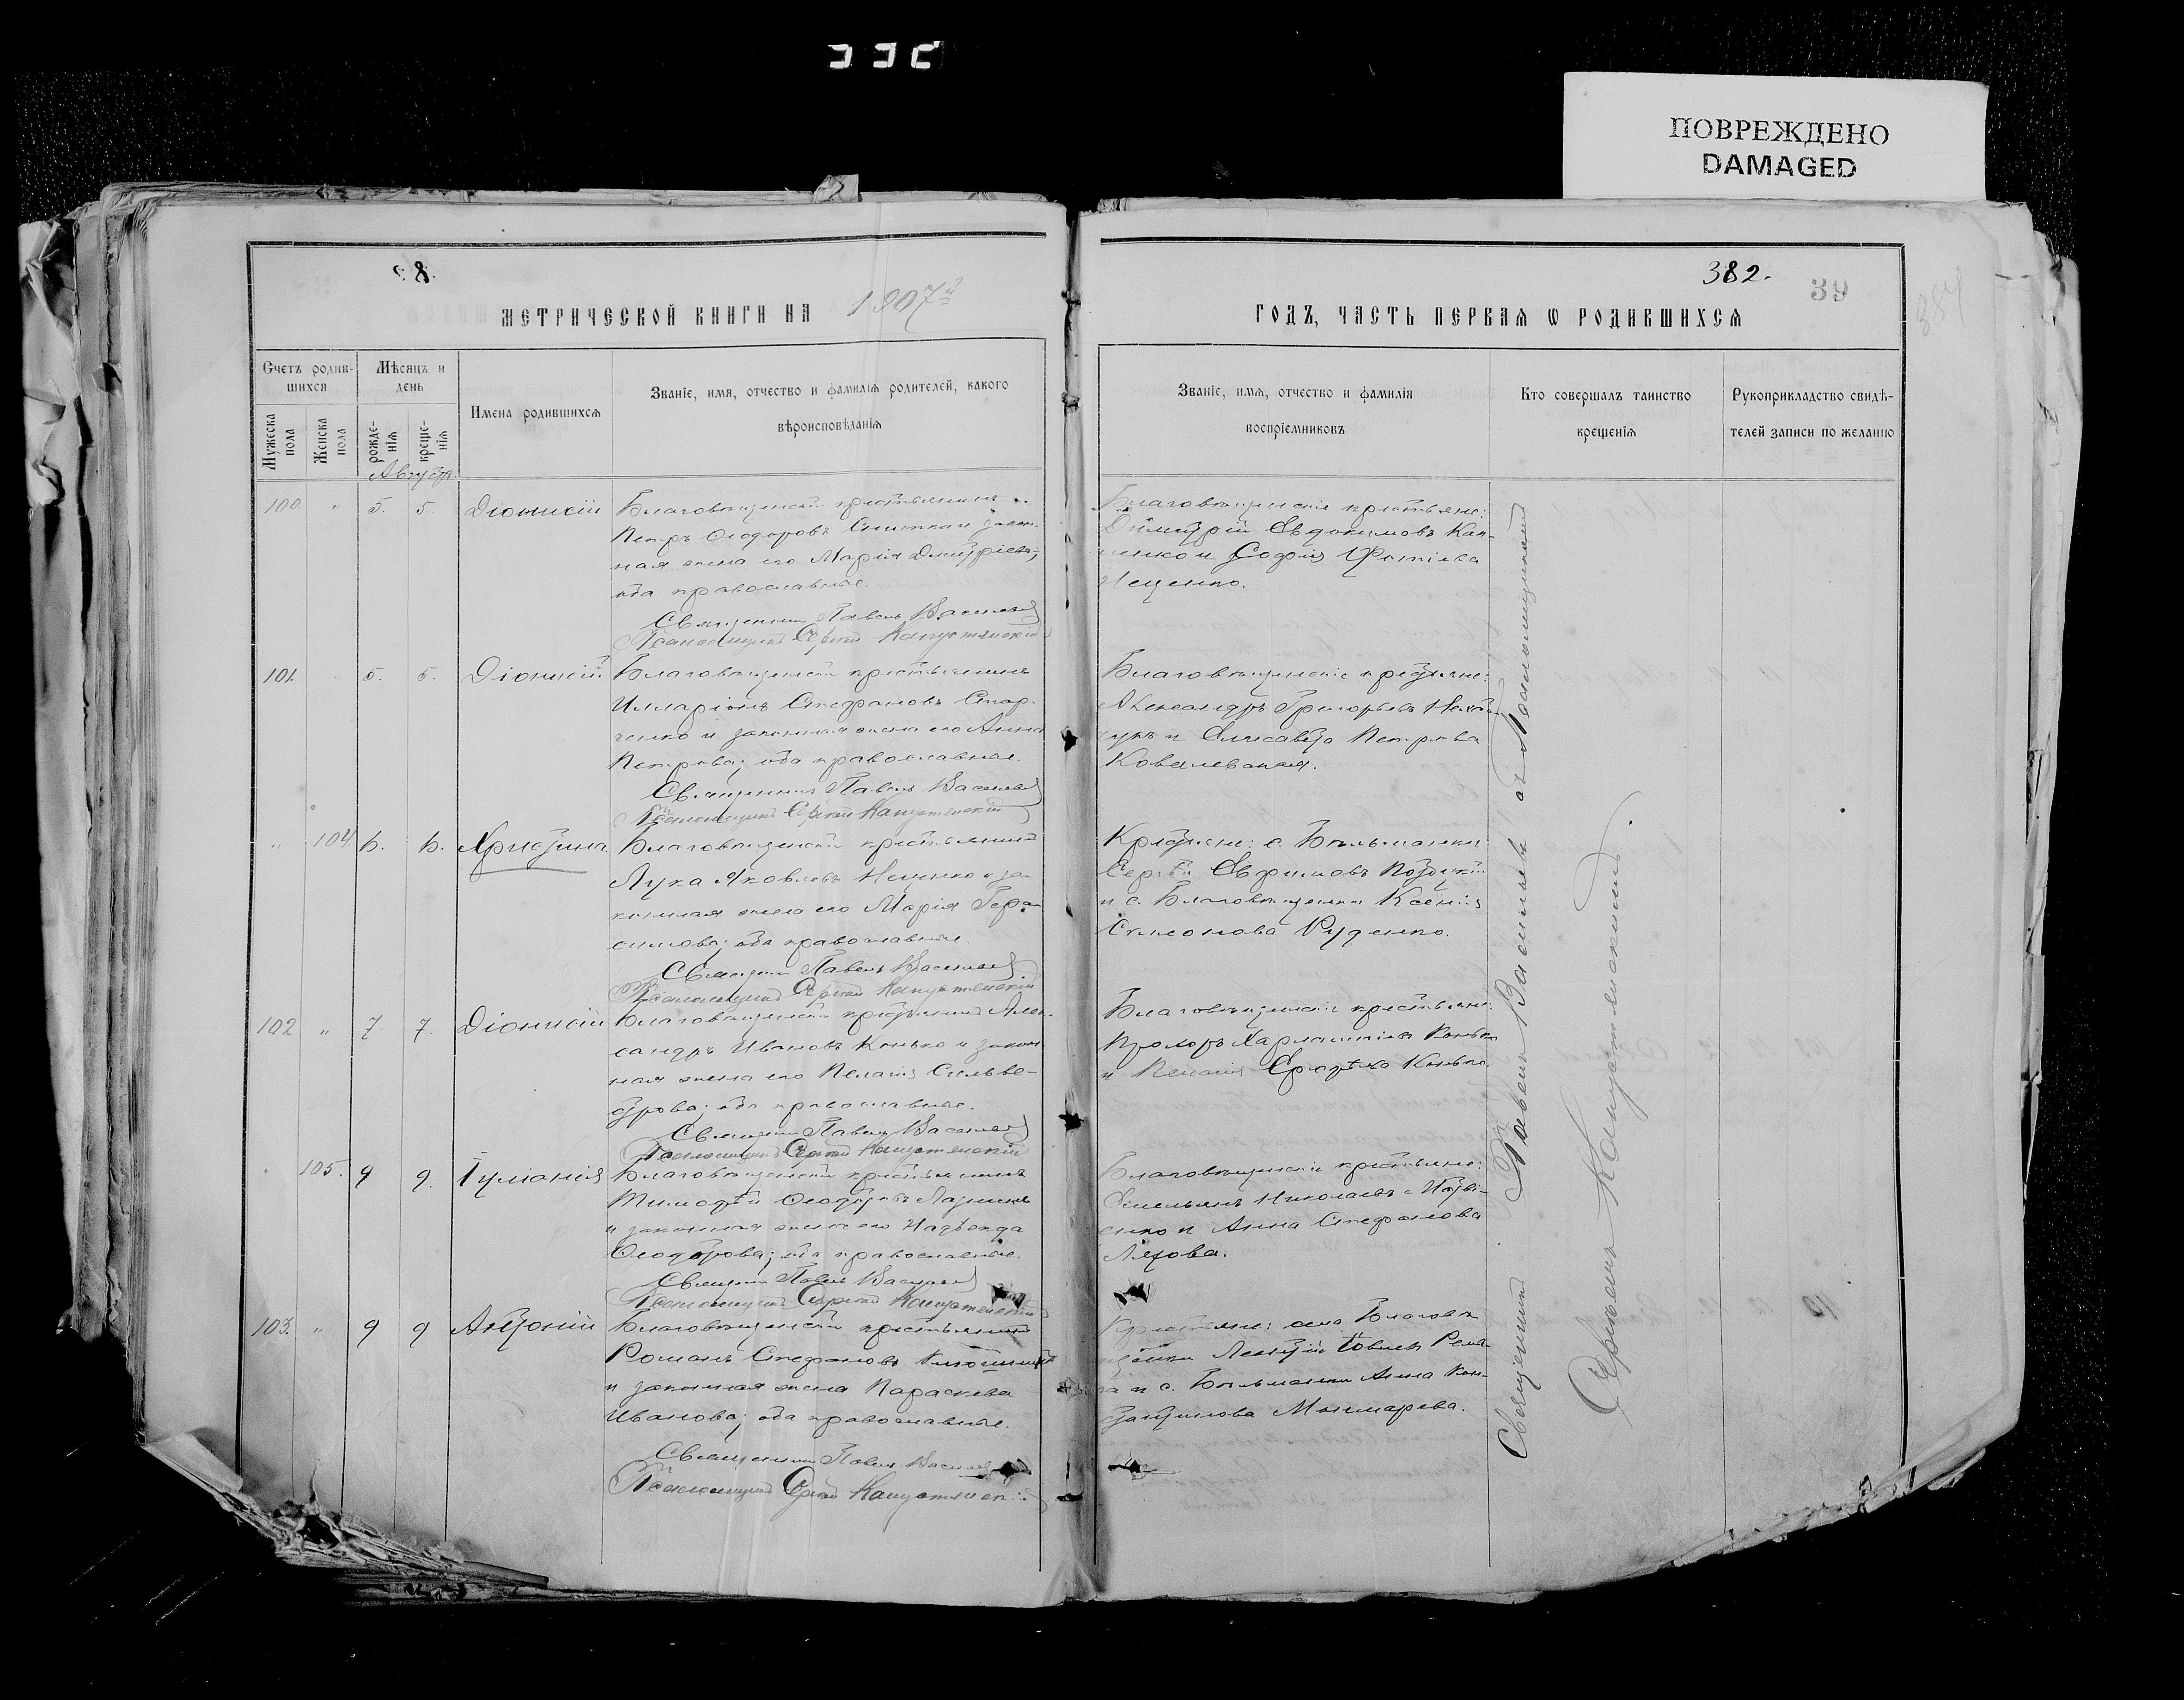 ПОВРЕЖДЕНО
DAMAGED
8.
382.
39
384
МЕТРИЧЕСКОЙ КНИГИ НА 1907й
ГОДЪ, ЧАСТЬ ПЕРВАЯ Ѡ РОДИВШИХСЯ
Счетъ родив-
шихся
Мѣсяцъ и
день
Имена родившихся
Званіе, имя, отчество и фамилія родителей, какого
вѣроисповѣданія
Мужеска
пола
Женска
пола
рожде-
нія
креще-
нія
Званіе, имя, отчество и фамилія
воспріемниковъ
Кто совершалъ таинство
крещенія
Рукоприкладство свидѣ-
телей записи по желанію
Августъ
100 " 5. 5. Діонисій
Благовѣщенскій крестьянинъ
Петръ Ѳеодоровъ и закон-
ная жена его Марія Дмитріева;
оба православные.
Священникъ Павелъ Васильевъ
Псаломщикъ Сергій Капустянскій
Благовѣщенскіе крестьяне:
Димитрій Евдокимовъ
и Софія
Ищенко.
101. " 5. 5. Діонисій
Благовѣщенскій крестьянинъ
Илларіонъ Стефановъ Стар-
ченко и законная жена его Анна
Петрова; оба православные.
Священникъ Павелъ Васильевъ
Псаломщикъ Сергій Капустянскій
Благовѣщенскіе крестьяне:
Александръ Григорьевъ
и Елисавета Петрова
Ковалевская.
" 104. 6. 6. Христина
Благовѣщенскій крестьянинъ
Лука Яковлевъ и за-
конная жена его Марія Гера-
симова; оба православные.
Священникъ Павелъ Васильевъ
Псаломщикъ Сергій Капустянскій
Крестьяне: с. Бельманки
Сергѣй Евфимовъ
и с. Благовѣщенки Ксенія
Симеонова Руденко.
102 " 7. 7. Діонисій
Благовѣщенскій крестьянинъ Алек-
сандръ Ивановъ Конько и закон-
ная жена его Пелагія Сильве-
строва; оба православные.
Священникъ Павелъ Васильевъ
Псаломщикъ Сергій Капустянскій
Благовѣщенскіе крестьяне:
Прохоръ Харлампіевъ Конько
и Пелагія Конько.
" 105. 9 9. Іуліанія
Благовѣщенскій крестьянинъ
Тимофѣй Ѳеодоровъ
и законная жена его Надежда
Ѳеодорова; оба православные.
Священникъ Павелъ Васильевъ
Псаломщикъ Сергій Капустянскій
Благовѣщенскіе крестьяне:
Емельянъ Николаевъ
и Анна Стефанова
103. " 9 9 Антоній
Благовѣщенскій крестьянинъ
Романъ Стефановъ
и законная жена Параскева
Иванова; оба православные.
Священникъ Павелъ Васильевъ
Псаломщикъ Сергій Капустянскій
Крестьяне: села Благовѣ-
щенки Леонтій
и с. Бельманки Анна Кон-
стантинова
Священникъ Павелъ Васильевъ съ Псаломщикомъ
Сергіемъ Капустянскимъ.